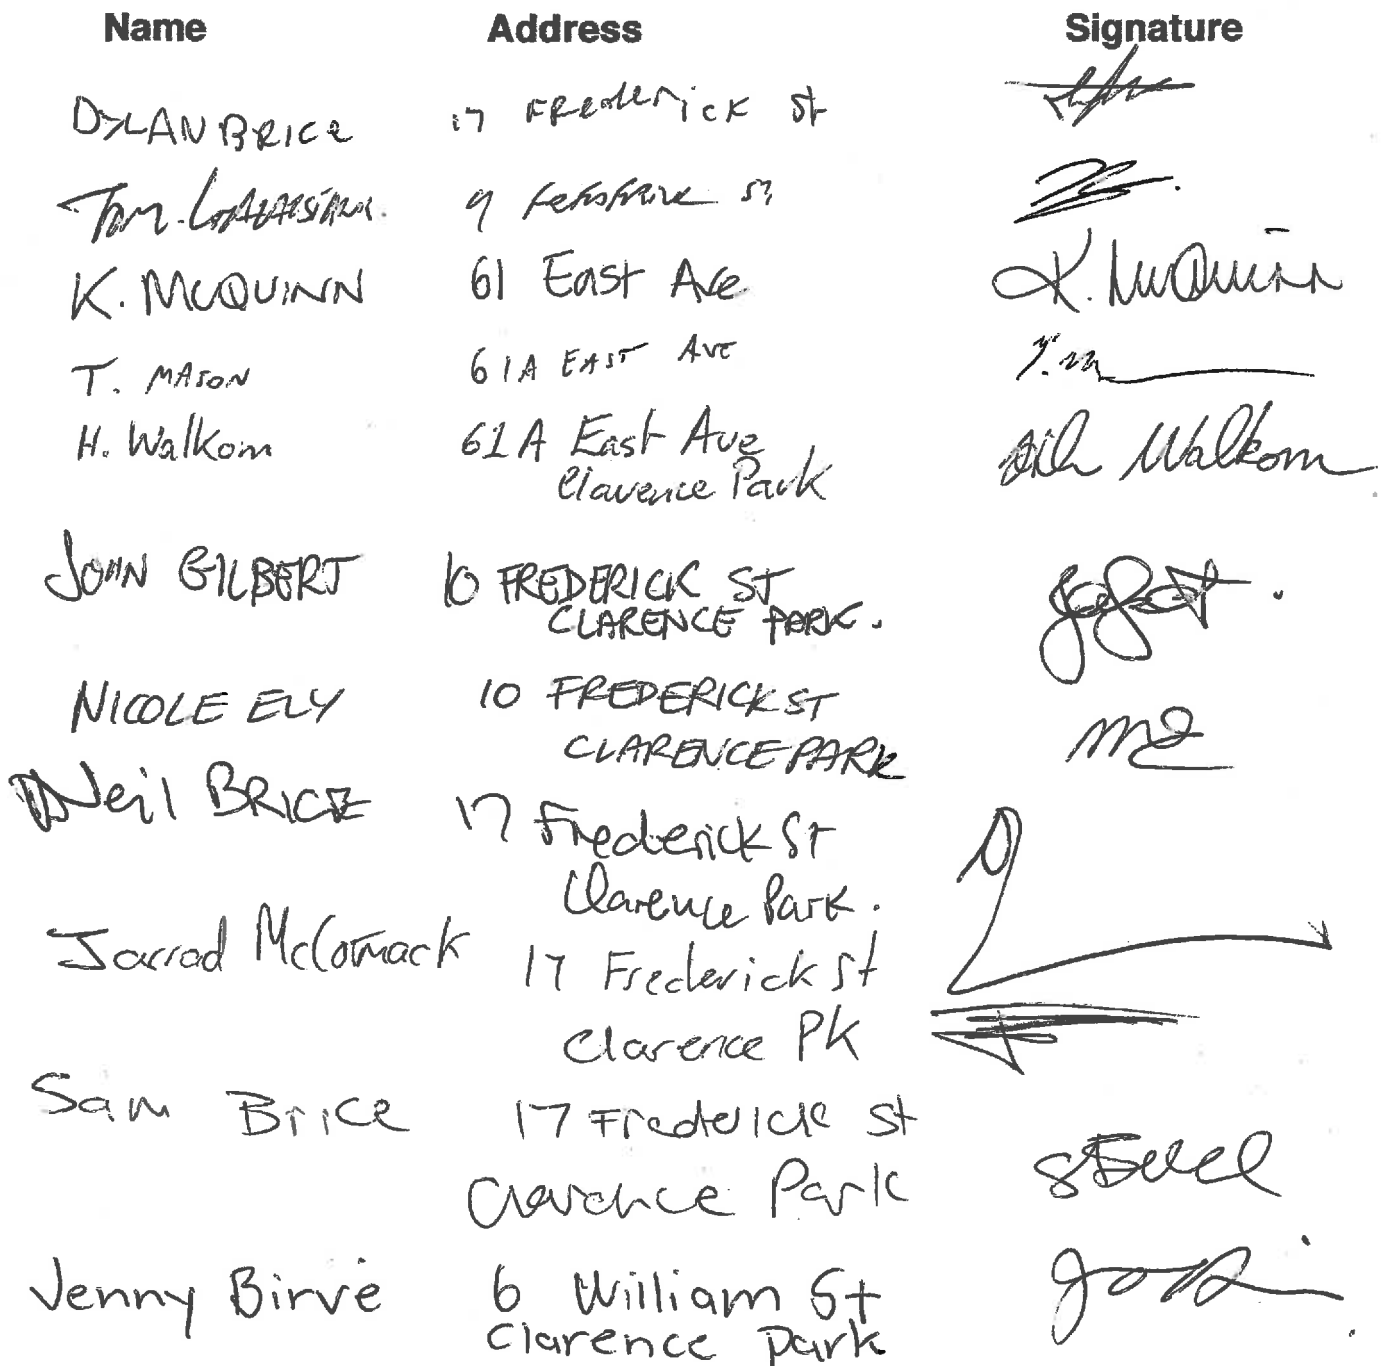 Name Address Signature
DYLAN BRICE 17 FREDERICK St
Tom 9 St
K. MCQUINN 61 East Ave K. McQuinn
T. MASON 61A EAST AVE T. M
H. Walkom 61A East Ave Walkom
Clarence Park
JOHN GILBERT 10 FREDERICK ST
CLARENCE PARK.
NICOLE ELY 10 FREDERICK ST
CLARENCE PARK
Neil BRICE 17 Frederick St
Clarence Park.
Jarrad McCormack 17 Frederick St
Clarence PK
Sam Brice 17 Frederick St
Clarence Park
Jenny Birve 6 William St
Clarence Park